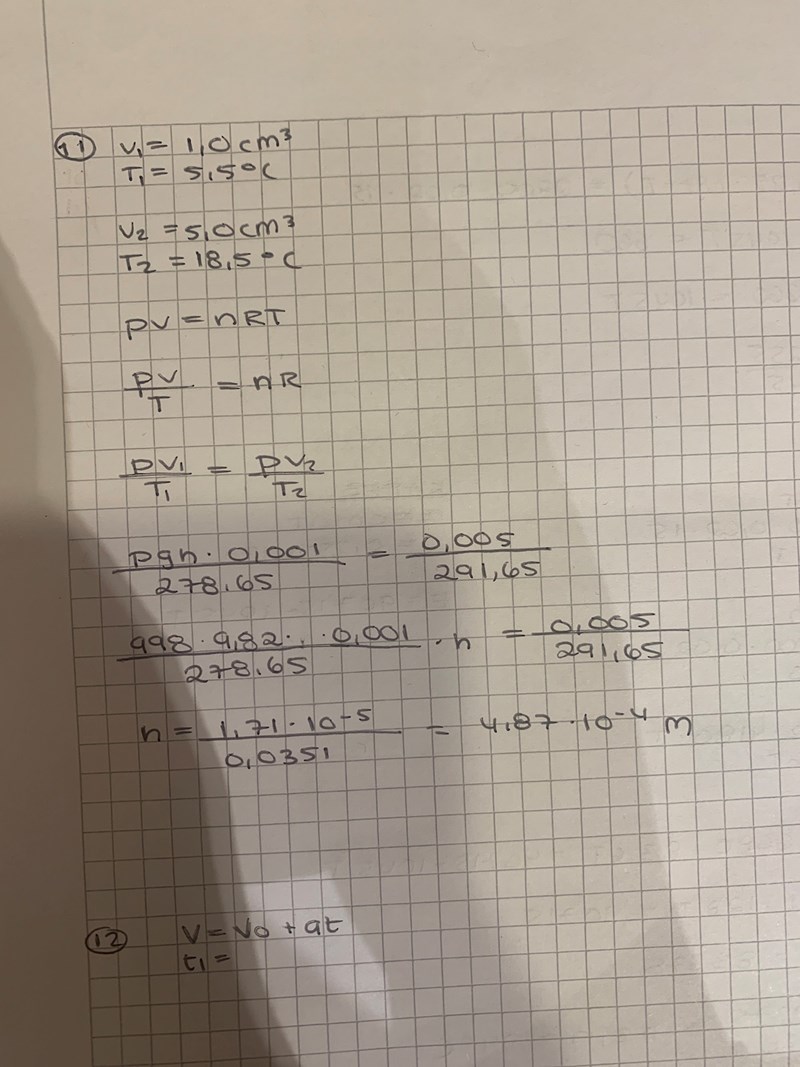 11 V₁ = 1,0 cm³
T₁ = 5,5°C
V₂ = 5,0 cm³
T₂ = 18,5°C
pV = nRT
pV/T = nR
pV₁/T₁ = pV₂/T₂
ρgh · 0,001/278,65 = 0,005/291,65
998 · 9,82 · · 0,001/278.65 · h = 0,005/291,65
h = 1,71 · 10⁻⁵/0,0351 = 4,87 · 10⁻⁴ m
12 V = V₀ + at
t₁ =